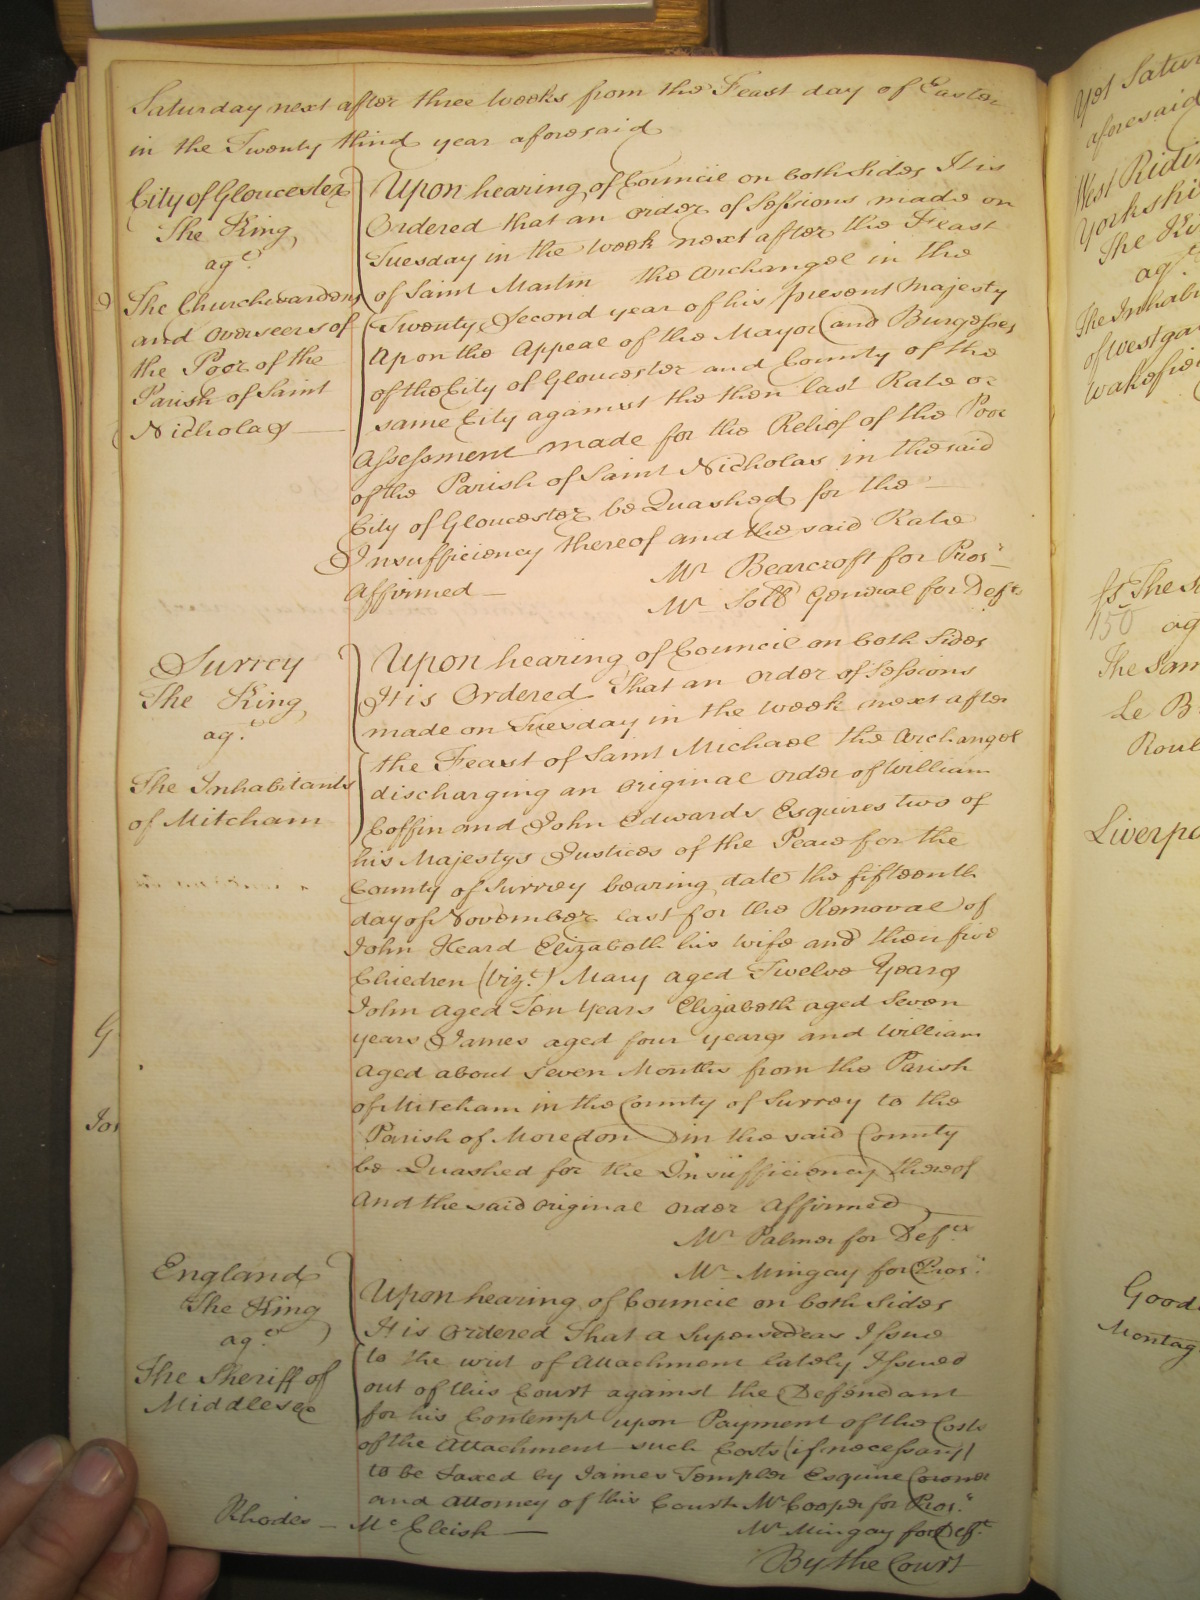 Saturday next after three Weeks from the Feast day of Easter
in the Twenty third year aforesaid
City of Gloucester
The King
agt
The Churchwardens
and Overseers of
the Poor of the
Parish of Saint
Nicholas
Upon hearing of Council on both Sides It is
Ordered that an order of Sessions made on
Tuesday in the Week next after the Feast
of Saint Martin the Archangel in the
Twenty Second year of his present Majesty
Upon the Appeal of the Mayor and Burgesses
of the City of Gloucester and County of the
same City against the then last Rate or
Assessment made for the Relief of the Poor
of the Parish of Saint Nicholas in the said
City of Gloucester be Quashed for the
Insufficiency thereof and the said Rate
Affirmed
Mr Bearcroft for Pros.
Mr Sollr General for Deft
Surrey
The King
agt
The Inhabitants
of Mitcham
Upon hearing of Council on both Sides
It is Ordered That an order of Sessions
made on Tuesday in the Week next after
the Feast of Saint Michael the Archangel
discharging an Original Order of William
Coffin and John Edwards Esquires two of
his Majestys Justices of the Peace for the
County of Surrey bearing date the fifteenth
day of November last for the Removal of
John Heard Elizabeth his Wife and their five
Children (vizt) Mary aged Twelve Years
John aged Ten Years Elizabeth aged Seven
years James aged four years and William
Aged about Seven Months from the Parish
of Mitcham in the County of Surrey to the
Parish of Moredon in the said County
be Quashed for the Insufficiency thereof
And the said Original Order Affirmed
Mr Palmer for Defts
Mr Mingay for Pros.
England
The King
agt
The Sheriff of
Middlesex
Upon hearing of Council on both Sides
It is Ordered That a Supersedeas Issue
to the writ of Attachment lately Issued
out of this Court against the Defendant
for his Contempt upon Payment of the Costs
of the Attachment such Costs (if necessary)
to be Taxed by James Templer Esquire Coroner
and Attorney of this Court Mr Cooper for Pros.
Rhodes - McCleish
Mr Mingay for Deft
By the Court
aforesaid
West
The
agt
The
of
agt
The
Le